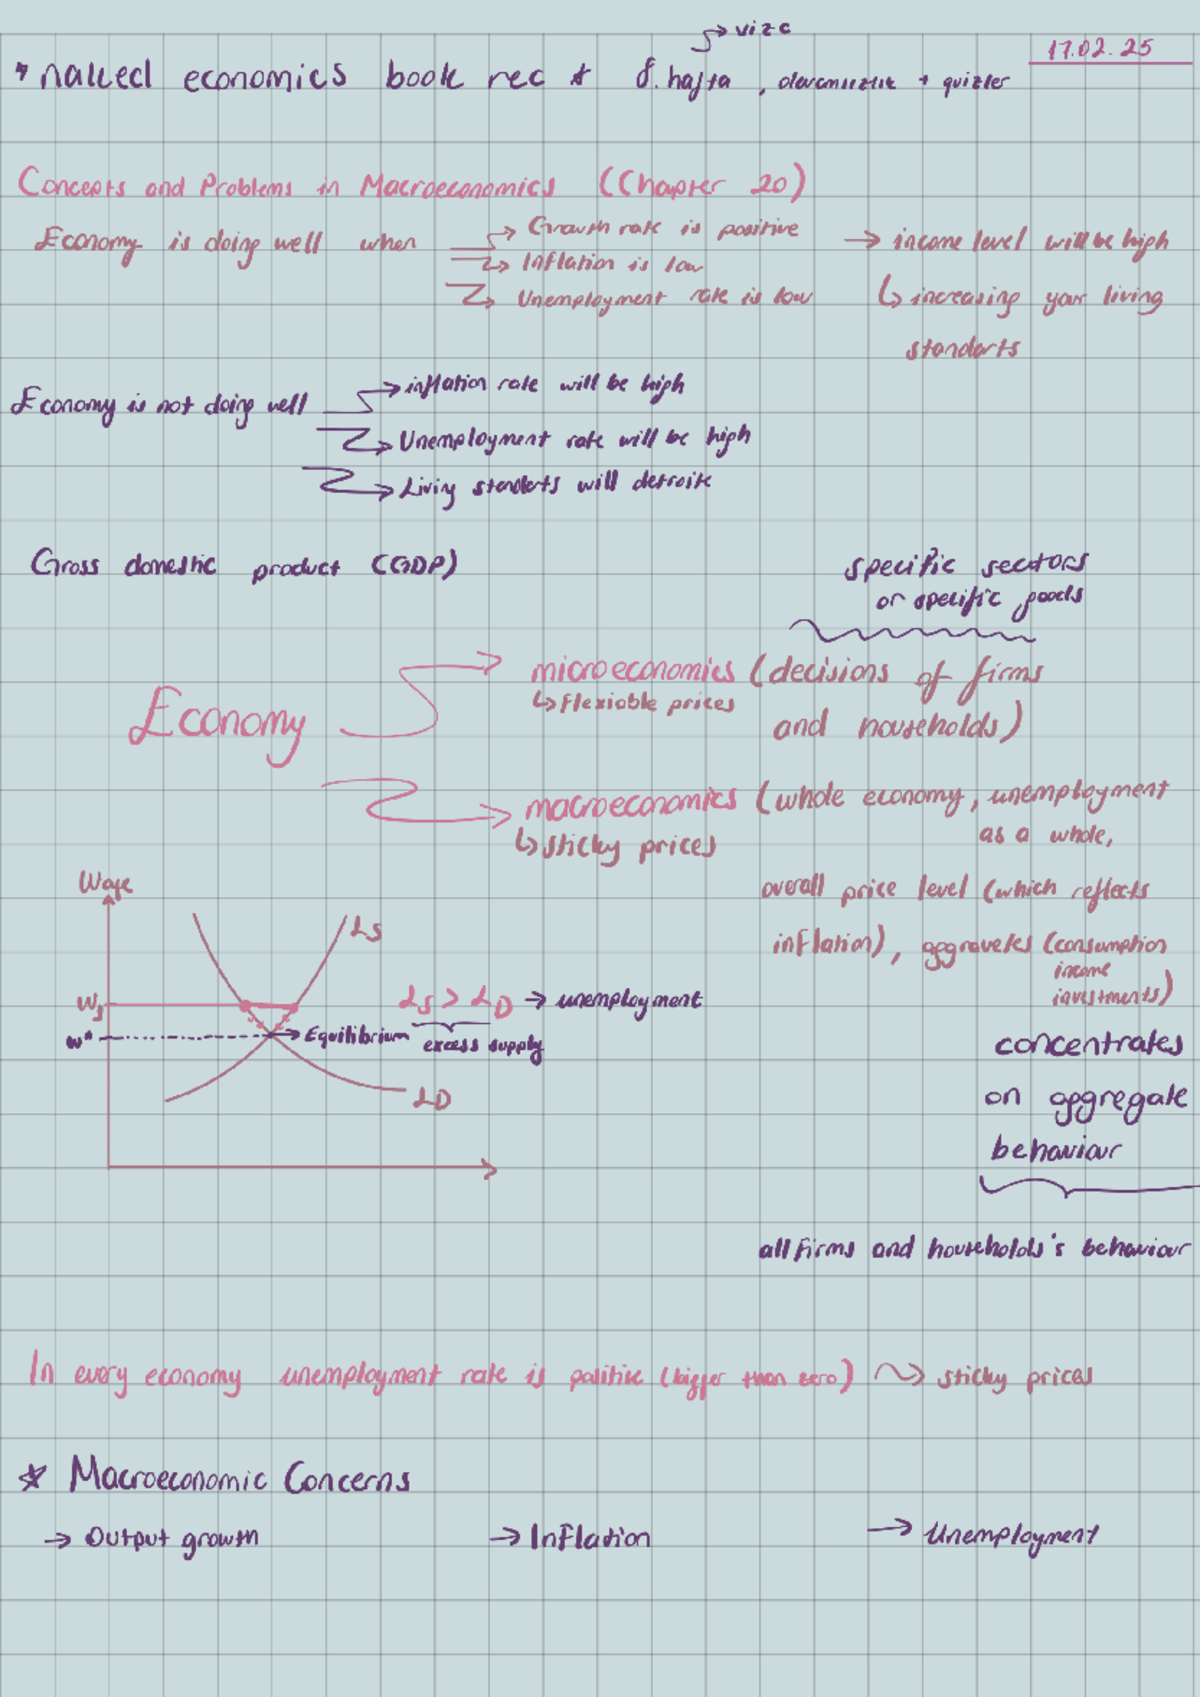 vize
17.02.25
* naked economics book rec * 8. hafta, devamsızlık + quizler
Concepts and Problems in Macroeconomics (Chapter 20)
Economy is doing well when → Growth rate is positive → income level will be high
→ Inflation is low
→ Unemployment rate is low ↳ increasing your living
standarts
Economy is not doing well → inflation rate will be high
→ Unemployment rate will be high
→ Living standarts will detroite
Gross domestic product (GDP)
specific sectors
or specific goods
Economy → microeconomics (decisions of firms
↳ flexiable prices and households)
→ macroeconomics (whole economy, unemployment
↳ sticky prices as a whole,
overall price level (which reflects
inflation), aggravetes (consumption
income
investments)
concentrates
on aggregate
behaviour
all firms and households's behaviour
Wage
LS
W₁
LS > LD → unemployment
excess supply
w*
→ Equilibrium
LD
In every economy unemployment rate is positive (bigger than zero) → sticky prices
* Macroeconomic Concerns
→ Output growth → Inflation → Unemployment